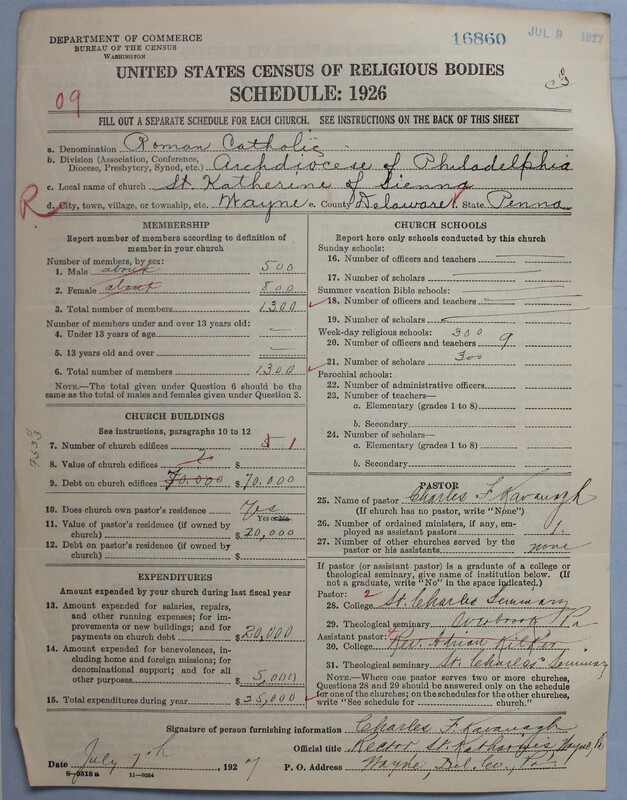 DEPARTMENT OF COMMERCE
BUREAU OF THE CENSUS
WASHINGTON
16860
JUL 9 1927
UNITED STATES CENSUS OF RELIGIOUS BODIES
SCHEDULE: 1926
09
FILL OUT A SEPARATE SCHEDULE FOR EACH CHURCH. SEE INSTRUCTIONS ON THE BACK OF THIS SHEET
a. Denomination Roman Catholic
b. Division (Association, Conference, Diocese, Presbytery, Synod, etc.) Archdiocese of Philadelphia
c. Local name of church St. Katherine of Sienna
R
d. City, town, village, or township, etc. Wayne e. County Delaware f. State Penna
MEMBERSHIP
Report number of members according to definition of
member in your church
Number of members, by sex:
1. Male about 500
2. Female about 800
3. Total number of members 1300
Number of members under and over 13 years old:
4. Under 13 years of age
5. 13 years old and over
6. Total number of members 1300
NOTE.—The total given under Question 6 should be the
same as the total of males and females given under Question 3.
CHURCH BUILDINGS
See instructions, paragraphs 10 to 12
7. Number of church edifices 1
8. Value of church edifices $
9. Debt on church edifices 70.000 $ 70.000
10. Does church own pastor's residence Yes
Yes or No
11. Value of pastor's residence (if owned by
church) $ 20,000
12. Debt on pastor's residence (if owned by
church) $
EXPENDITURES
Amount expended by your church during last fiscal year
13. Amount expended for salaries, repairs,
and other running expenses; for im-
provements or new buildings; and for
payments on church debt $ 20,000
14. Amount expended for benevolences,
including home and foreign missions; for
denominational support; and for all
other purposes $ 5,000
15. Total expenditures during year $ 25,000
CHURCH SCHOOLS
Report here only schools conducted by this church
Sunday schools:
16. Number of officers and teachers
17. Number of scholars
Summer vacation Bible schools:
18. Number of officers and teachers
19. Number of scholars
Week-day religious schools: 300
20. Number of officers and teachers 9
21. Number of scholars 300
Parochial schools:
22. Number of administrative officers
23. Number of teachers—
a. Elementary (grades 1 to 8)
b. Secondary
24. Number of scholars—
a. Elementary (grades 1 to 8)
b. Secondary
PASTOR
25. Name of pastor Charles F Kavanagh
(If church has no pastor, write "None")
26. Number of ordained ministers, if any, em-
ployed as assistant pastors 1
27. Number of other churches served by the
pastor or his assistants none
If pastor (or assistant pastor) is a graduate of a college or
theological seminary, give name of institution below. (If
not a graduate, write "No" in the space indicated.)
Pastor: 2
28. College St. Charles Seminary
29. Theological seminary Overbrook Pa
Assistant pastor:
30. College Rev. Adrian Kilker
31. Theological seminary St. Charles Seminary
NOTE.—Where one pastor serves two or more churches,
Questions 28 and 29 should be answered only on the schedule
for one of the churches; on the schedules for the other churches,
write "See schedule for church."
Signature of person furnishing information Charles F. Kavanagh
Official title Rector St. Katharine's Wayne, Pa
Date July 7th, 1927 P. O. Address Wayne, Del. Co., Pa
8—9318 a 11—9034